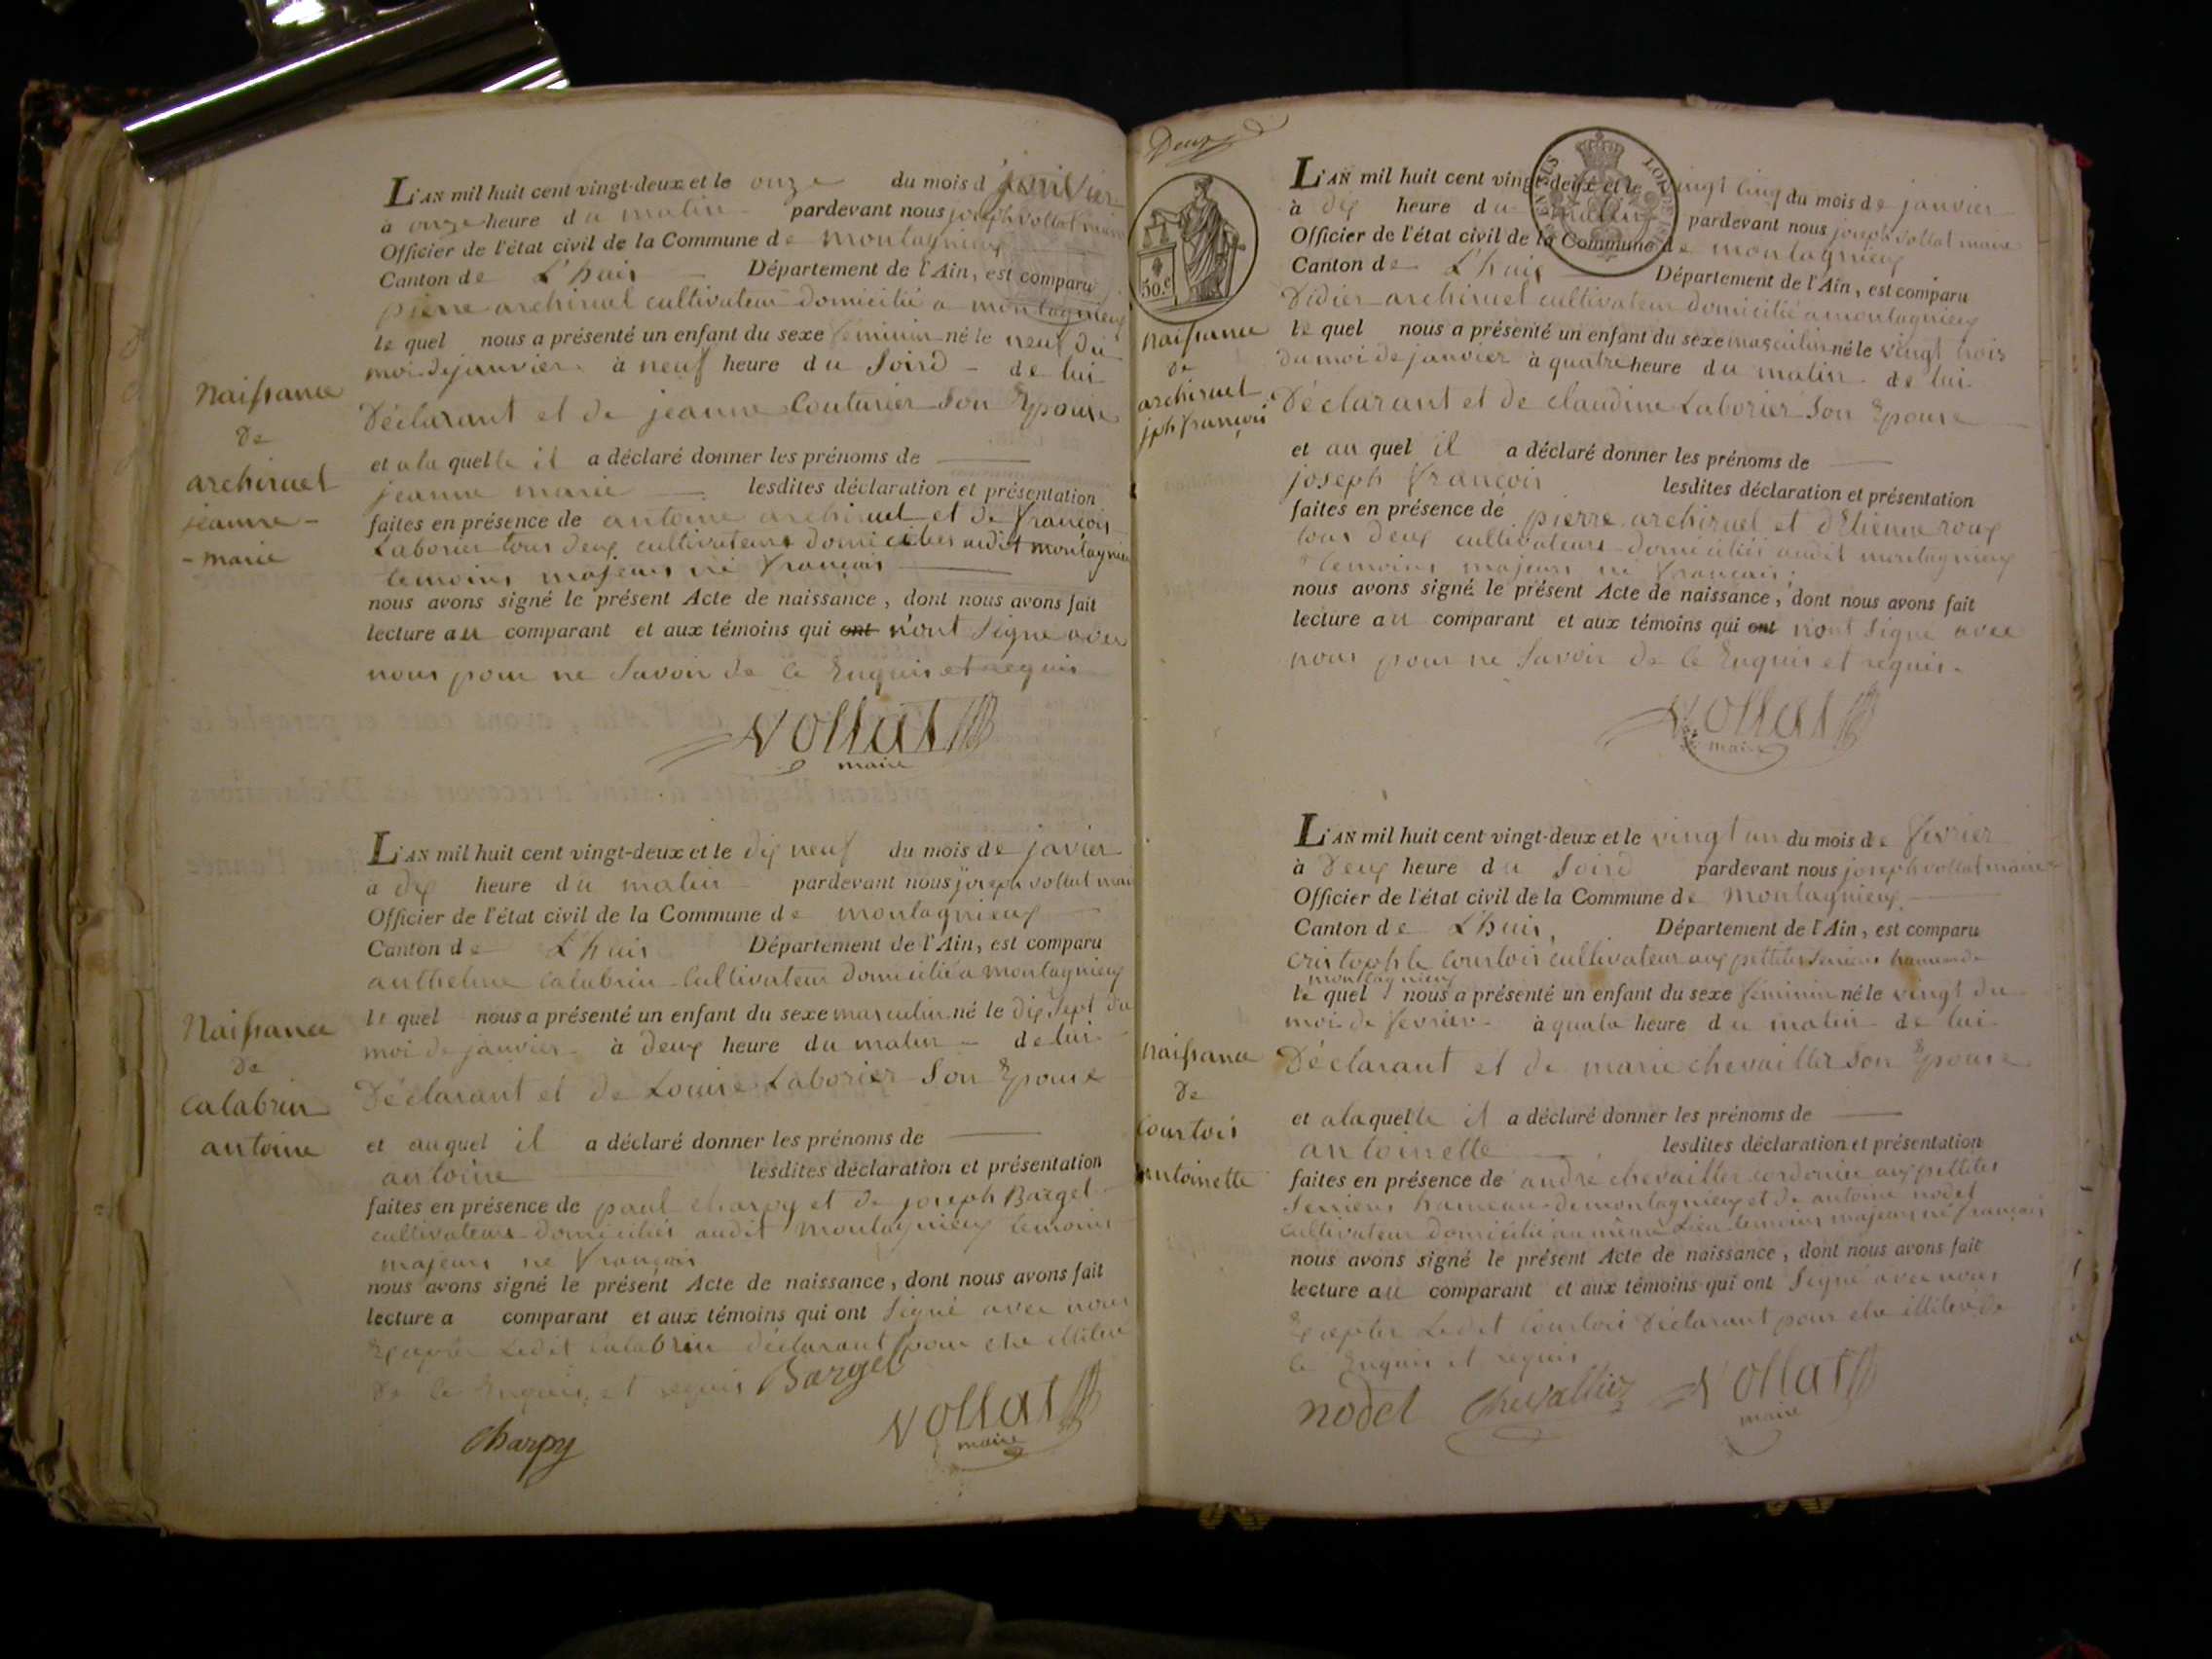 L'AN mil huit cent vingt-deux et le onze du mois d janvier
à onze heure du matin pardevant nous joseph vollat maire
Officier de l'état civil de la Commune de montagnieux
Canton de L'huis Département de l'Ain, est comparu
pierre archiruel cultivateur domicilié a montagnieux
le quel nous a présenté un enfant du sexe féminin né le neuf du
moi de janvier à neuf heure du Soird de lui
Déclarant et de jeanne Couturier Son Epouse
et a la quelle il a déclaré donner les prénoms de
jeanne marie lesdites déclaration et présentation
faites en présence de antoine archiruel et de françois
Laborier tous deux cultivateurs domiciliés audit montagnieux
temoins majeurs né français
nous avons signé le présent Acte de naissance, dont nous avons fait
lecture au comparant et aux témoins qui ont n'ont Signé avec
nous pour ne Savoir de ce Enquis et requis
Vollat
maire
Naissance
de
archiruel
jeanne-
-marie
L'AN mil huit cent vingt-deux et le dix neuf du mois de javier
à dix heure du matin pardevant nous joseph vollat maire
Officier de l'état civil de la Commune de montagnieux
Canton de L'huis Département de l'Ain, est comparu
anthelme Calabrin Cultivateur domicilié a montagnieux
le quel nous a présenté un enfant du sexe masculin né le dix Sept du
moi de janvier à deux heure du matin de lui
Déclarant et de Louise Laborier Son Epouse
et au quel il a déclaré donner les prénoms de
antoine lesdites déclaration et présentation
faites en présence de paul charpy et de joseph Bargel
cultivateurs domiciliés audit montagnieux temoins
majeurs né français
nous avons signé le présent Acte de naissance, dont nous avons fait
lecture a comparant et aux témoins qui ont Signé avec nous
Excepter Ledit Calabrin déclarant pour etre
de ce Enquis et requis Bargel
Charpy
Vollat
maire
Naissance
de
Calabrin
antoine
Deux
30.c
L'AN mil huit cent vingt-deux et le vingt cinq du mois de janvier
à dix heure du matin pardevant nous joseph vollat maire
Officier de l'état civil de la Commune de montagnieux
Canton de L'huis Département de l'Ain, est comparu
Didier archiruel cultivateur domicilié a montagnieux
le quel nous a présenté un enfant du sexe masculin né le vingt trois
du moi de janvier à quatre heure du matin de lui
Déclarant et de claudine Laborier Son Epouse
et au quel il a déclaré donner les prénoms de
joseph françois lesdites déclaration et présentation
faites en présence de pierre archiruel et d'Etienne roux
tous deux cultivateurs domiciliés audit montagnieux
temoins majeurs né français;
nous avons signé le présent Acte de naissance, dont nous avons fait
lecture au comparant et aux témoins qui ont n'ont Signé avec
nous pour ne Savoir de ce Enquis et requis.
Vollat
maire
Naissance
de
archiruel
jph françois
L'AN mil huit cent vingt-deux et le vingt un du mois de fevrier
à Deux heure du Soird pardevant nous joseph vollat maire
Officier de l'état civil de la Commune de Montagnieux
Canton de L'huis, Département de l'Ain, est comparu
Cristophle Courtois cultivateur aux pettites Serrieres hameau de
montagnieux
le quel nous a présenté un enfant du sexe féminin né le vingt du
moi de fevrier à quatre heure du matin de lui
Déclarant et de marie chevailler Son Epouse
et a la quelle il a déclaré donner les prénoms de
antoinette lesdites déclaration et présentation
faites en présence de andré chevailler cordonier aux pettites
Serrieres hameau de montagnieux et de antoine nodet
Cultivateur domicilié au même Lieu temoins majeurs né français
nous avons signé le présent Acte de naissance, dont nous avons fait
lecture au comparant et aux témoins qui ont Signé avec nous
Excepter Ledit Courtois Déclarant pour etre de
ce Enquis et requis
nodet Chevallier Vollat
maire
Naissance
de
Courtois
Antoinette